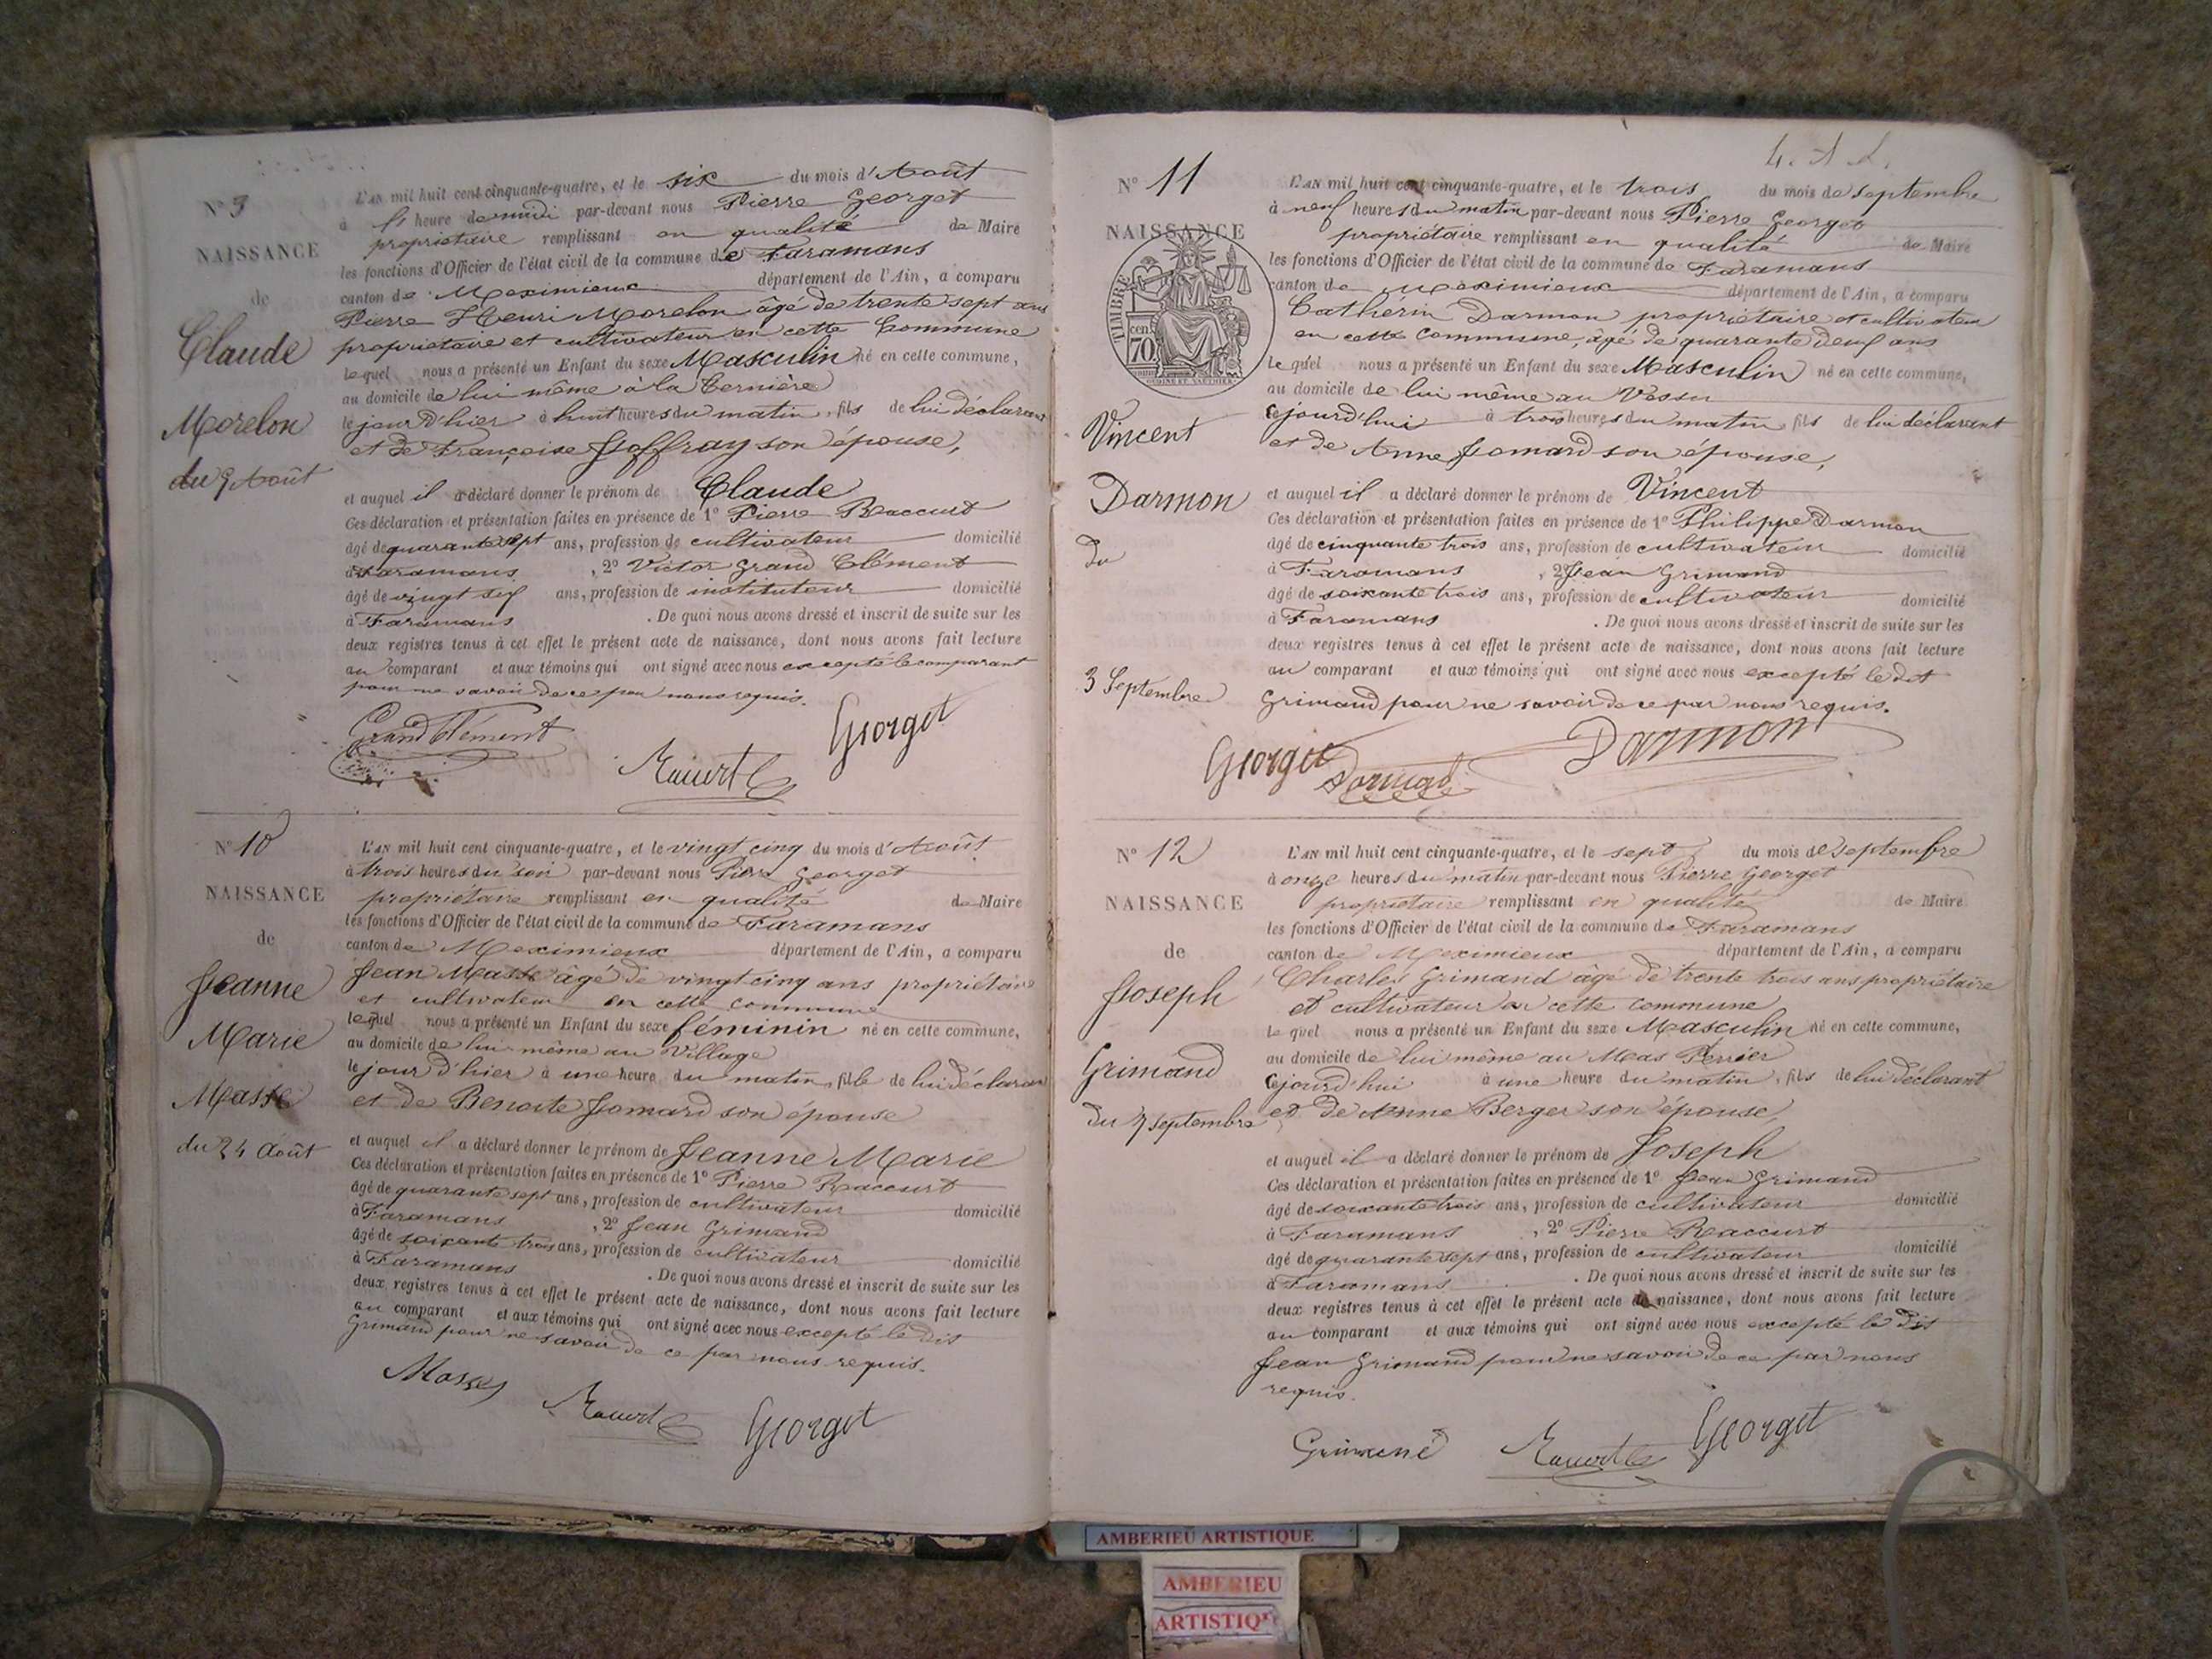 N° 9
NAISSANCE
de
Claude
Morelon
du 9 Août
L'AN mil huit cent cinquante-quatre, et le six du mois d'Août
à heure de midi par-devant nous Pierre Georget
propriétaire remplissant en qualité de Maire
les fonctions d'Officier de l'état civil de la commune de Faramans
canton de Meximieux département de l'Ain, a comparu
Pierre Henri Morelon âgé de trente sept ans
propriétaire et cultivateur en cette Commune
lequel nous a présenté un Enfant du sexe Masculin né en cette commune,
au domicile de lui même à la
le jour d'hier à huit heures du matin, fils de lui déclarant
et de Françoise Joffray son épouse,
et auquel il a déclaré donner le prénom de Claude
Ces déclaration et présentation faites en présence de 1° Pierre Raccurt
âgé de quarante sept ans, profession de cultivateur domicilié
à Faramans, 2° Victor Grand Clément
âgé de vingt six ans, profession de instituteur domicilié
à Faramans. De quoi nous avons dressé et inscrit de suite sur les
deux registres tenus à cet effet le présent acte de naissance, dont nous avons fait lecture
au comparant et aux témoins qui ont signé avec nous excepté le comparant
pour ne savoir de ce par nous requis.
Grand Clément
Raccurt
Georget
N° 10
NAISSANCE
de
Jeanne
Marie
Masse
du 24 Août
L'AN mil huit cent cinquante-quatre, et le vingt cinq du mois d'Août
à trois heures du soir par-devant nous Pierre Georget
propriétaire remplissant en qualité de Maire
les fonctions d'Officier de l'état civil de la commune de Faramans
canton de Meximieux département de l'Ain, a comparu
Jean Masse âgé de vingt cinq ans propriétaire
et cultivateur en cette commune
lequel nous a présenté un Enfant du sexe féminin né en cette commune,
au domicile de lui même au Village
le jour d'hier à une heure du matin, fille de lui déclarant
et de Benoite Jomard son épouse
et auquel il a déclaré donner le prénom de Jeanne Marie
Ces déclaration et présentation faites en présence de 1° Pierre Raccurt
âgé de quarante sept ans, profession de cultivateur domicilié
à Faramans, 2° Jean Grimand
âgé de soixante trois ans, profession de cultivateur domicilié
à Faramans. De quoi nous avons dressé et inscrit de suite sur les
deux registres tenus à cet effet le présent acte de naissance, dont nous avons fait lecture
au comparant et aux témoins qui ont signé avec nous excepté le dit
Grimand pour ne savoir de ce par nous requis.
Masse
Raccurt
Georget
N° 11
NAISSANCE
TIMBRE
cen 70
Vincent
Darmon
du
3 Septembre
L'AN mil huit cent cinquante-quatre, et le trois du mois de septembre
à neuf heures du matin par-devant nous Pierre Georget
propriétaire remplissant en qualité de Maire
les fonctions d'Officier de l'état civil de la commune de Faramans
canton de Meximieux département de l'Ain, a comparu
Cathérin Darmon propriétaire et cultivateur
en cette commune, âgé de quarante deux ans
lequel nous a présenté un Enfant du sexe Masculin né en cette commune,
au domicile de lui même au
cejourd'hui à trois heures du matin, fils de lui déclarant
et de Anne Jomard son épouse,
et auquel il a déclaré donner le prénom de Vincent
Ces déclaration et présentation faites en présence de 1° Philippe Darmon
âgé de cinquante trois ans, profession de cultivateur domicilié
à Faramans, 2° Jean Grimand
âgé de soixante trois ans, profession de cultivateur domicilié
à Faramans. De quoi nous avons dressé et inscrit de suite sur les
deux registres tenus à cet effet le présent acte de naissance, dont nous avons fait lecture
au comparant et aux témoins qui ont signé avec nous excepté le dit
Grimand pour ne savoir de ce par nous requis.
Georget
Darmon
N° 12
NAISSANCE
de
Joseph
Grimand
du 7 septembre
L'AN mil huit cent cinquante-quatre, et le sept du mois de septembre
à onze heures du matin par-devant nous Pierre Georget
propriétaire remplissant en qualité de Maire
les fonctions d'Officier de l'état civil de la commune de Faramans
canton de Meximieux département de l'Ain, a comparu
Charles Grimand âgé de trente trois ans propriétaire
et cultivateur en cette commune
lequel nous a présenté un Enfant du sexe Masculin né en cette commune,
au domicile de lui même au Mas Perrier
cejourd'hui à une heure du matin, fils de lui déclarant
et de Anne Berger son épouse,
et auquel il a déclaré donner le prénom de Joseph
Ces déclaration et présentation faites en présence de 1° Jean Grimand
âgé de soixante trois ans, profession de cultivateur domicilié
à Faramans, 2° Pierre Raccurt
âgé de quarante sept ans, profession de cultivateur domicilié
à Faramans. De quoi nous avons dressé et inscrit de suite sur les
deux registres tenus à cet effet le présent acte de naissance, dont nous avons fait lecture
au comparant et aux témoins qui ont signé avec nous excepté le dit
Jean Grimand pour ne savoir de ce par nous
requis.
Grimand
Raccurt
Georget
AMBERIEU ARTISTIQUE
AMBERIEU
ARTISTIQ